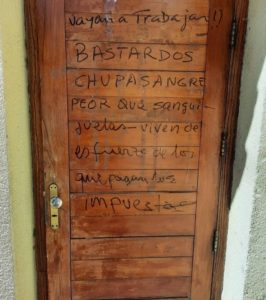 vayan a Trabajar!!
BASTARDOS
CHUPASANGRE
PEOR QUE sangui-
juelas - viven del
esfuerzo de los
que pagan los
impuestos